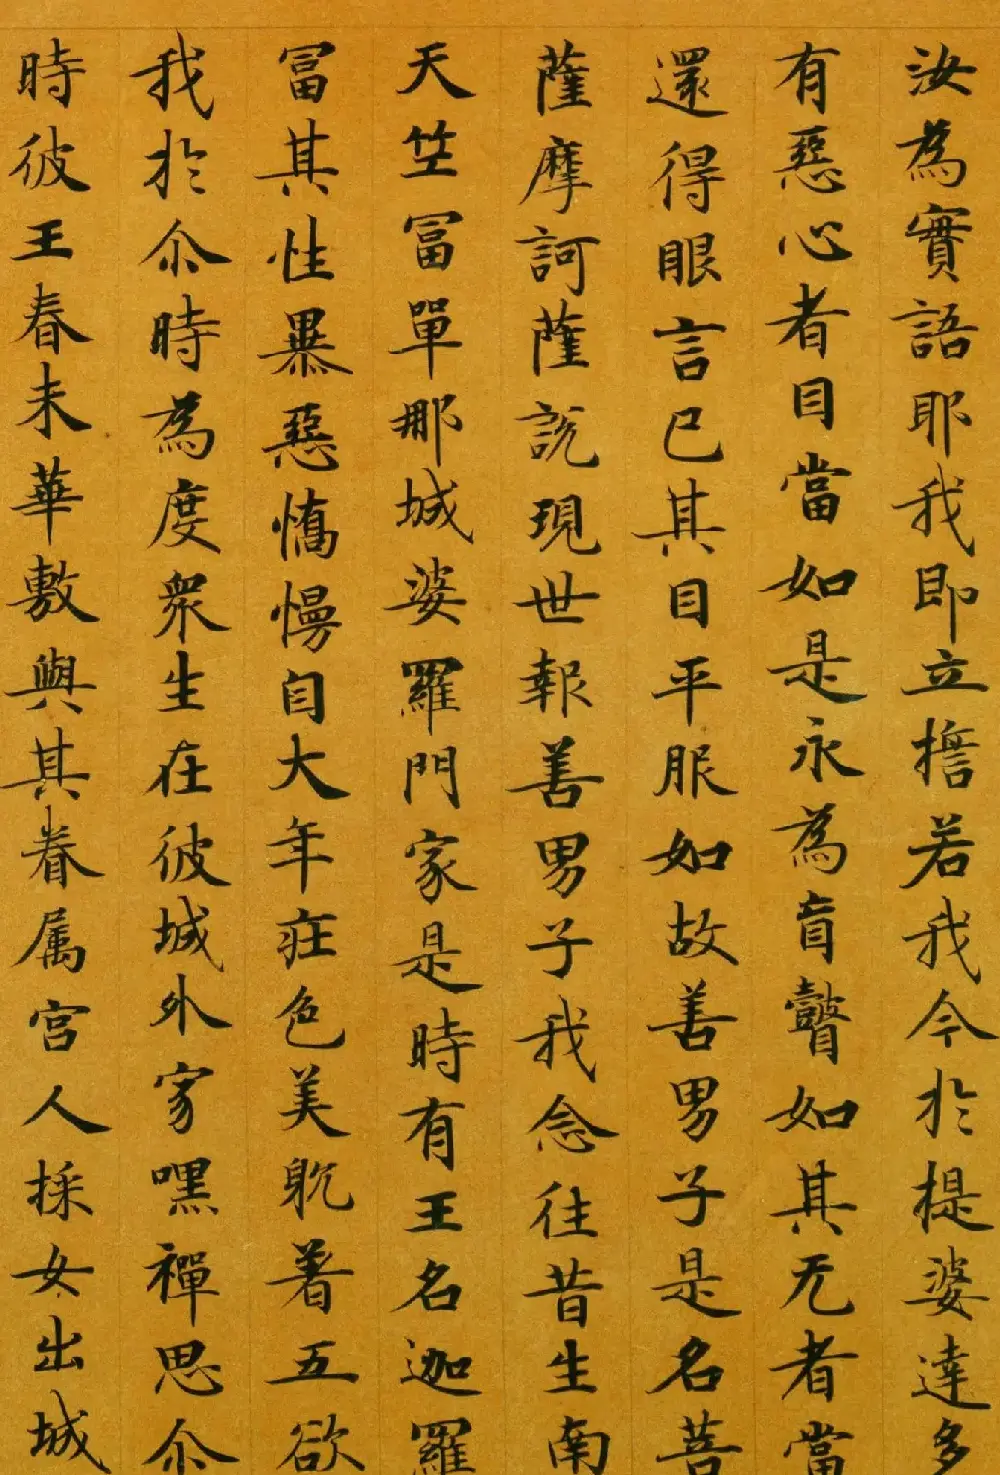 汝為實語耶我即立擔若我今於提婆達多
有惡心者目當如是永為盲瞽如其无者當
還得眼言已其目平服如故善男子是名菩
薩摩訶薩說現世報善男子我念往昔生南
天竺冨單那城婆羅門家是時有王名迦羅
冨其性㬥惡憍慢自大年莊色美躭着五欲
我於尒時為度衆生在彼城外家嘿禪思尒
時彼王春末華敷與其眷属宫人採女出城